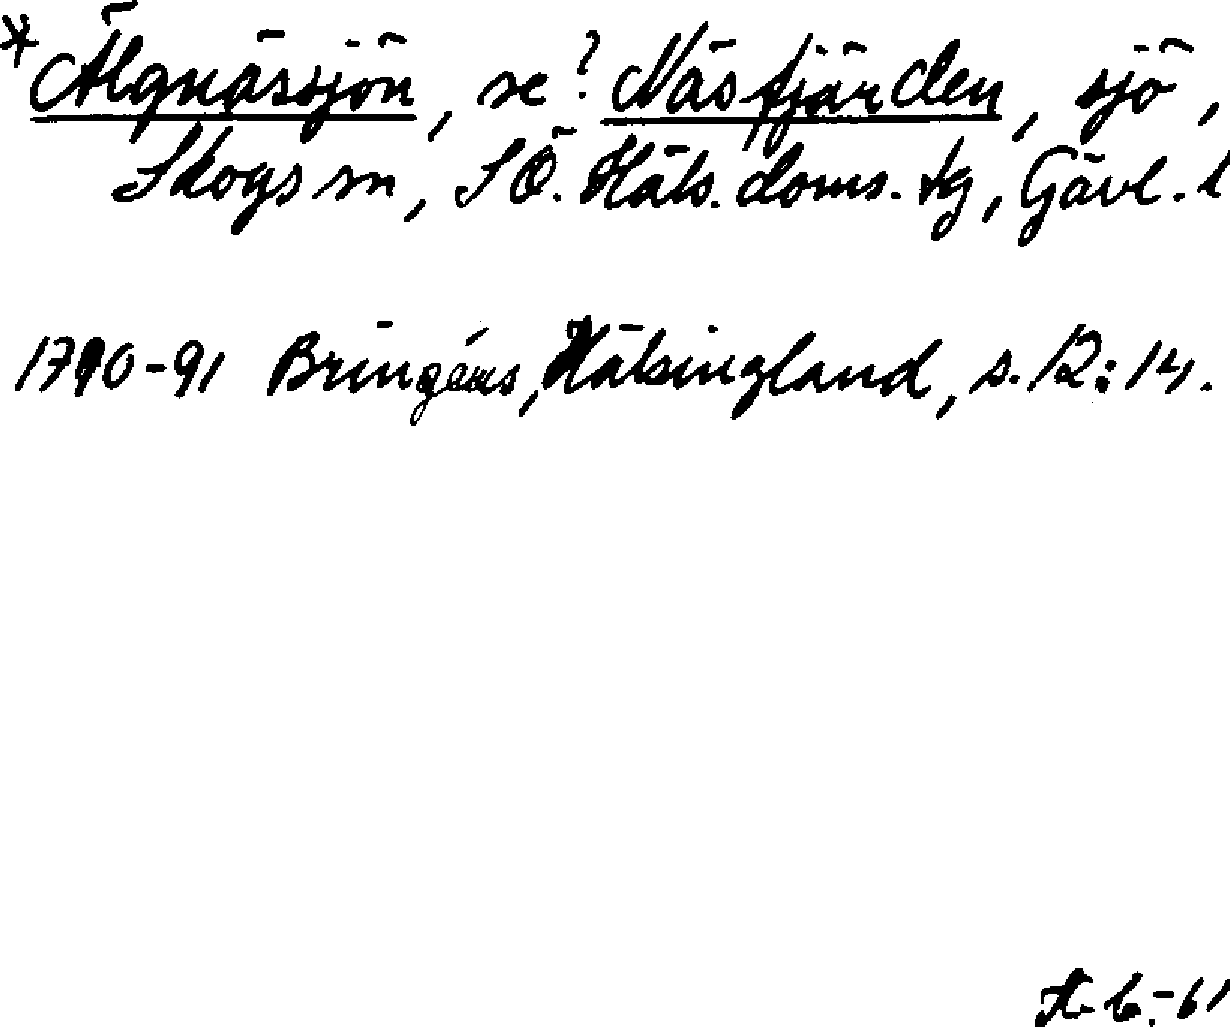 *Älgnässjön, se? Näsfjärden, sjö,
Skogs sn, SÖ. Häls. doms. tg, Gävl. l
1790-91 Bringéus, Hälsingland, s. 12:14.